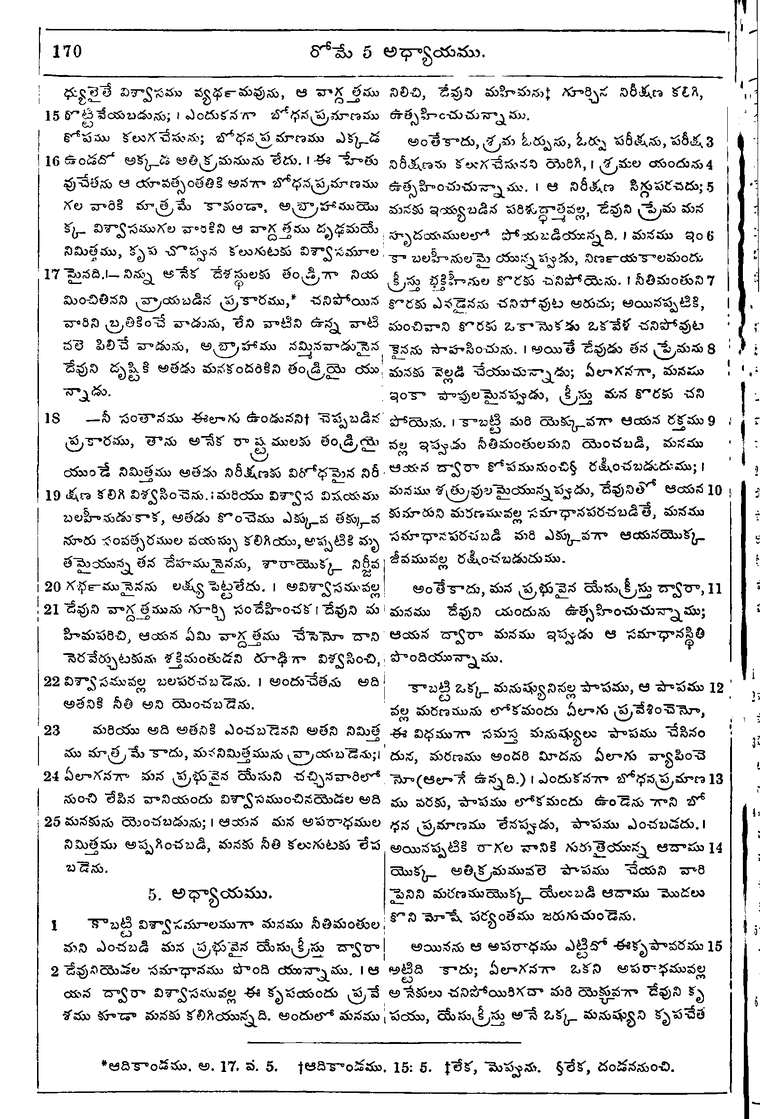 170
రోమే 5 అధ్యాయము.
ధ్యులైతే విశ్వాసము వ్యర్థమవును, ఆ వాగ్దత్తము
15 కొట్టివేయబడును; । ఎందుకనగా బోధనప్రమాణము
కోపము కలుగచేసును; బోధనప్రమాణము ఎక్కడ
16 ఉండదో అక్కడ అతిక్రమమును లేదు. । ఈ హేతు
వుచేతను ఆ యావత్సంతతికి అనగా బోధనప్రమాణము
గల వారికి మాత్రమే కాకుండా, అబ్రాహాముయొ
క్క విశ్వాసముగల వారికిని ఆ వాగ్దత్తము దృఢమయ్యే
నిమిత్తము, కృప చొప్పున కలుగుటకు విశ్వాసమూల
17 మైనది.।— నిన్ను అనేక దేశస్థులకు తండ్రిగా నియ
మించితినని వ్రాయబడిన ప్రకారము,* చనిపోయిన
వారిని బ్రతికించే వాడును, లేని వాటిని ఉన్న వాటి
వలె పిలిచే వాడును, అబ్రాహాము నమ్మినవాడునైన
దేవుని దృష్టికి అతడు మనకందరికిని తండ్రియై యు
న్నాడు.
18 —నీ సంతానము ఈలాగు ఉండునని† చెప్పబడిన
ప్రకారము, తాను అనేక రాష్ట్రములకు తండ్రియై
యుండే నిమిత్తము అతడు నిరీక్షణకు విరోధమైన నిరీ
19 క్షణ కలిగి విశ్వసించెను. । మరియు విశ్వాస విషయము
బలహీనుడుకాక, అతడు కొంచెము ఎక్కువ తక్కువ
నూరు సంవత్సరముల వయస్సు కలిగియు, అప్పటికి మృ
తమైయున్న తన దేహమునైనను, శారాయొక్క నిర్జీవ
20 గర్భమునైనను లక్ష్యపెట్టలేదు. । అవిశ్వాసమువల్ల
21 దేవుని వాగ్దత్తమును గూర్చి సందేహించక । దేవుని మ
హిమపరిచి, ఆయన ఏమి వాగ్దత్తము చేసెనో దాని
నెరవేర్చుటకును శక్తిమంతుడని రూఢిగా విశ్వసించి,
22 విశ్వాసమువల్ల బలపరచబడెను. । అందుచేతను అది
అతనికి నీతి అని యెంచబడెను.
23 మరియు అది అతనికి ఎంచబడెనని అతని నిమిత్త
ము మాత్రమే కాదు, మననిమిత్తమును వ్రాయబడెను; ।
24 ఏలాగనగా మన ప్రభువైన యేసుని చచ్చినవారిలో
నుంచి లేపిన వానియందు విశ్వాసముంచినయెడల అది
25 మనకును యెంచబడును; । ఆయన మన అపరాధముల
నిమిత్తము అప్పగించబడి, మనకు నీతి కలుగుటకు లేప
బడెను.
5. అధ్యాయము.
1 కాబట్టి విశ్వాసమూలముగా మనము నీతిమంతుల
మని ఎంచబడి మన ప్రభువైన యేసుక్రీస్తు ద్వారా
2 దేవునియెడల సమాధానము పొంది యున్నాము. । ఆ
యన ద్వారా విశ్వాసమువల్ల ఈ కృపయందు ప్రవే
శము కూడా మనకు కలిగియున్నది. అందులో మనము
నిలిచి, దేవుని మహిమను‡ గూర్చిన నిరీక్షణ కలిగి,
ఉత్సహించుచున్నాము.
అంతేకాదు, శ్రమ ఓర్పును, ఓర్పు పరీక్షను, పరీక్ష 3
నిరీక్షణను కలుగచేసునని యెరిగి, । శ్రమల యందును 4
ఉత్సహించుచున్నాము. । ఆ నిరీక్షణ సిగ్గుపరచదు; 5
మనకు ఇయ్యబడిన పరిశుద్ధాత్మవల్ల, దేవుని ప్రేమ మన
హృదయములలో పోయబడియున్నది. । మనము ఇం 6
కా బలహీనులమై యున్నప్పుడు, నిర్ణయకాలమందు
క్రీస్తు భక్తిహీనుల కొరకు చనిపోయెను. । నీతిమంతుని 7
కొరకు ఎవడైనను చనిపోవుట అరుదు; అయినప్పటికి,
మంచివాని కొరకు ఒకానొకడు ఒకవేళ చనిపోవుట
కైనను సాహసించును. । అయితే దేవుడు తన ప్రేమను 8
మనకు వెల్లడి చేయుచున్నాడు; ఏలాగనగా, మనము
ఇంకా పాపులమైనప్పుడు, క్రీస్తు మన కొరకు చని
పోయెను. । కాబట్టి మరి యెక్కువగా ఆయన రక్తము 9
వల్ల ఇప్పుడు నీతిమంతులమని యెంచబడి, మనము
ఆయన ద్వారా కోపమునుంచి§ రక్షించబడుదుము; ।
మనము శత్రువులమైయున్నప్పుడు, దేవునితో ఆయన 10
కుమారుని మరణమువల్ల సమాధానపరచబడితే, మనము
సమాధానపరచబడి మరి ఎక్కువగా ఆయనయొక్క
జీవమువల్ల రక్షించబడుదుము.
అంతేకాదు, మన ప్రభువైన యేసుక్రీస్తు ద్వారా, 11
మనము దేవుని యందును ఉత్సహించుచున్నాము;
ఆయన ద్వారా మనము ఇప్పుడు ఆ సమాధానస్థితి
పొందియున్నాము.
కాబట్టి ఒక్క మనుష్యునివల్ల పాపము, ఆ పాపము 12
వల్ల మరణమును లోకమందు ఏలాగు ప్రవేశించెనో,
ఈ విధముగా సమస్త మనుష్యులు పాపము చేసినం
దున, మరణము అందరి మీదను ఏలాగు వ్యాపించె
నో (ఆలాగే ఉన్నది.) । ఎందుకనగా బోధనప్రమాణ 13
ము వరకు, పాపము లోకమందు ఉండెను గాని బో
ధన ప్రమాణము లేనప్పుడు, పాపము ఎంచబడదు. ।
అయినప్పటికి రాగల వానికి గురుతైయున్న ఆదాము 14
యొక్క అతిక్రమమువలె పాపము చేయని వారి
పైనిని మరణముయొక్క యేలుబడి ఆదాము మొదలు
కొని మోషే పర్యంతము జరుగుచుండెను.
అయినను ఆ అపరాధము ఎట్టిదో ఈకృపావరము 15
అట్టిది కాదు; ఏలాగనగా ఒకని అపరాధమువల్ల
అనేకులు చనిపోయిరిగదా మరి యెక్కువగా దేవుని కృ
పయు, యేసుక్రీస్తు అనే ఒక్క మనుష్యుని కృపచేత
*ఆదికాండము. అ. 17. వ. 5. †ఆదికాండము. 15: 5. ‡లేక, మెప్పును. §లేక, దండననుంచి.